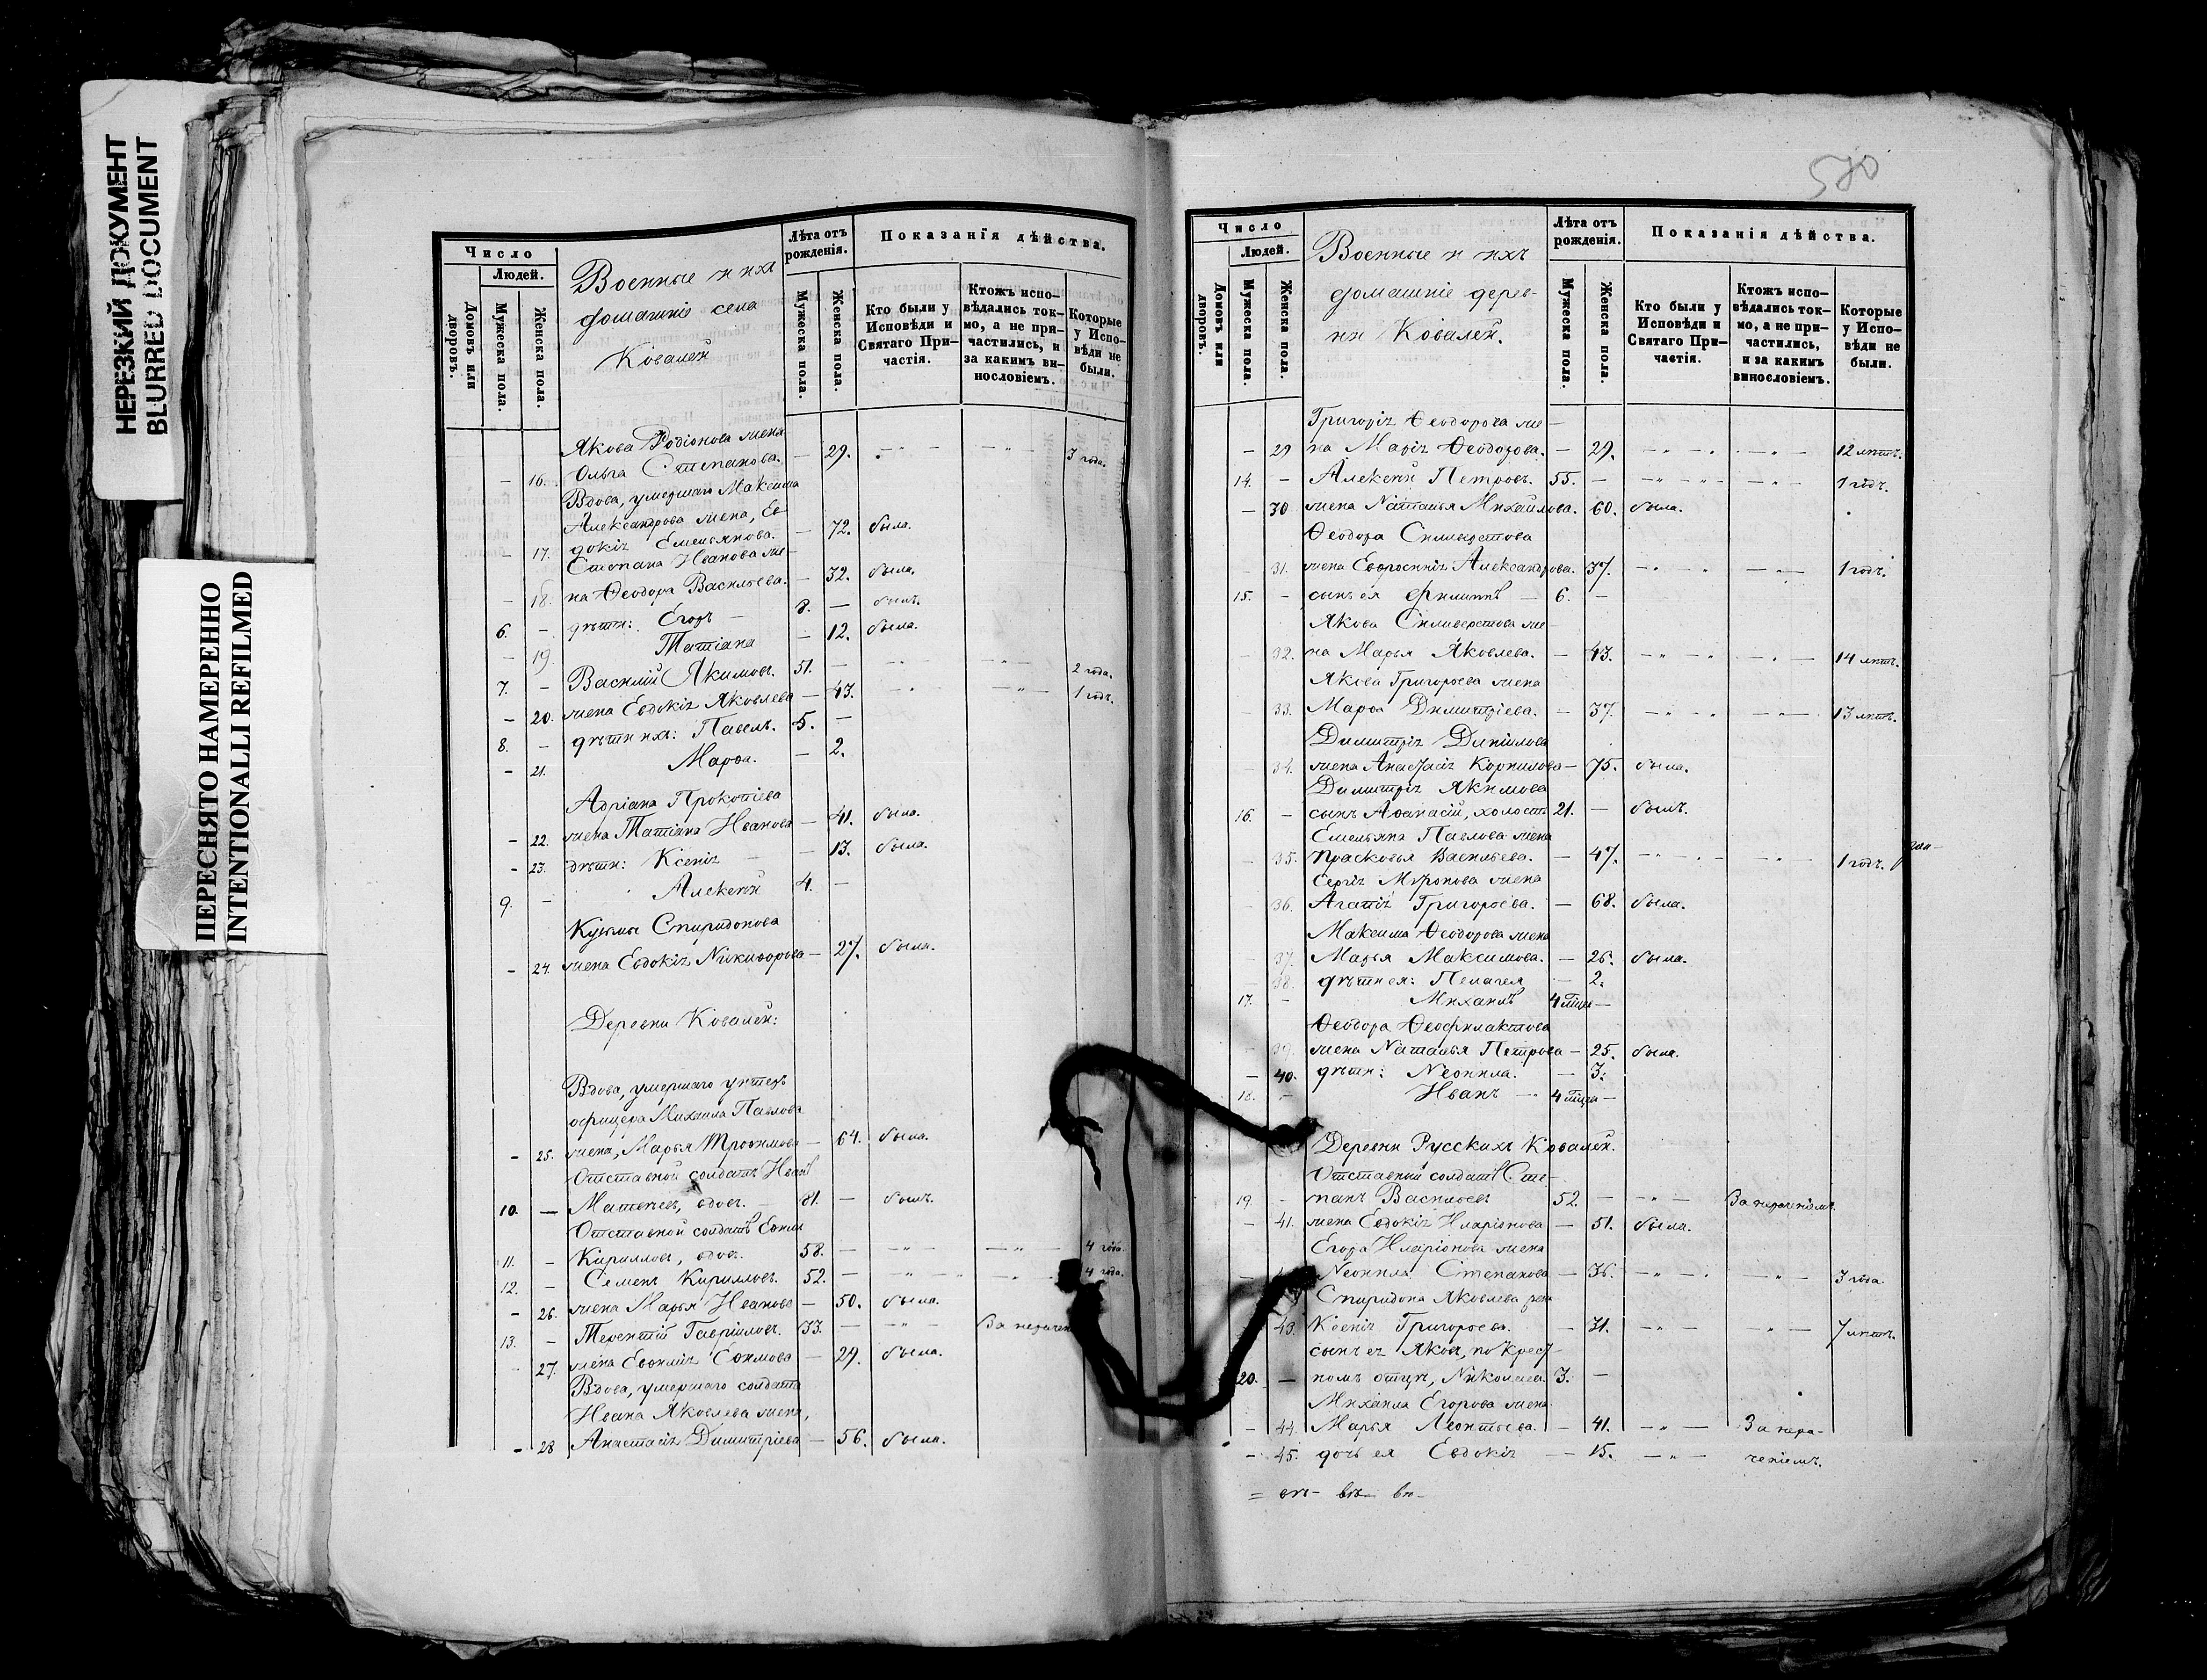 НЕРЕЗКИЙ ДОКУМЕНТ
BLURRED DOCUMENT
ПЕРЕСНЯТО НАМЕРЕННО
INTENTIONALLI REFILMED
Число
Людей.
Домовъ или дворовъ.
Мужеска пола.
Женска пола.
Военные и ихъ
домашніе села
Ковалей
Лѣта отъ рожденія.
Мужеска пола.
Женска пола.
Показанія дѣйства.
Кто были у Исповѣди и Святаго Причастія.
Ктожъ исповѣдались токмо, а не причастились, и за какимъ винословіемъ.
Которые у Исповѣди не были.
Якова Родіонова жена
- 16. Ольга Степанова. - 29. 3 года.
Вдова, умершаго Максима
Александрова жена, Ев-
- 17. докія Емельянова. - 72. была.
Степана Иванова же-
- 18. на Ѳеодора Васильева. - 32. была.
6. - дѣти: Егоръ - 8. - былъ.
- 19. Татіана - 12. была.
7. - Василій Якимовъ. 51. - 2 года.
- 20. жена Евдокія Яковлева - 43. 1 годъ.
8. - дѣти ихъ: Павелъ. 5. -
- 21. Марѳа. - 2.
Адріана Прокопіева
- 22. жена Татіана Иванова - 41. была.
- 23. дѣти: Ксенія - 13. была.
9. - Алексѣй 4. -
Кузьмы Спиридонова
- 24. жена Евдокія Никифорова - 27. была.
Деревни Ковалей:
Вдова, умершаго унтеръ
офицера Михаила Павлова
- 25. жена, Марья Трофимова - 64. была.
Отставной солдатъ Иванъ
10. - Матвѣевъ, вдовъ. - 81. - былъ.
Отставной солдатъ Ефим
11. - Кирилловъ, вдов. 58. - 4 года.
12. - Семенъ Кирилловъ. 52. - 4 года.
- 26. жена Марья Иванова - 50. была.
13. - Терентій Гавріиловъ. 33. - За нерачен
- 27. жена Евѳимія Ефимова - 29. была.
Вдова, умершаго солдата
Ивана Яковлева жена,
- 28 Анастасія Димитріева - 56. была.
570
Число
Людей.
Домовъ или дворовъ.
Мужеска пола.
Женска пола.
Военные и ихъ
домашніе дерев-
ни Ковалей.
Лѣта отъ рожденія.
Мужеска пола.
Женска пола.
Показанія дѣйства.
Кто были у Исповѣди и Святаго Причастія.
Ктожъ исповѣдались токмо, а не причастились, и за какимъ винословіемъ.
Которые у Исповѣди не были.
Григорія Ѳеодорова же-
- 29 на Марія Ѳеодорова. - 29. 12 лѣтъ.
14. - Алексѣй Петровъ. 55. - 1 годъ.
- 30 жена Наталья Михайлова. 60. была.
Ѳеодора Сильверстова
31. жена Евфросинія Александрова. 37. 1 годъ.
15. - сынъ ея Филиппъ - 6. -
Якова Сильверстова же-
32. на Марья Яковлева. - 43. 14 лѣтъ.
Якова Григорьева жена
33. Марѳа Димитріева. - 37. 13 лѣтъ.
Димитрія Даніилова
34. жена Анастасія Корнилова - 75. была.
Димитрія Акимова
16. - сынъ Аѳанасій, холостъ 21. - былъ.
Емельяна Павлова жена
35. Прасковья Васильева. - 47. 1 годъ.
Сергія Миронова жена
36. Агапія Григорьева. - 68. была.
Максима Ѳеодорова жена
37. Марья Максимова. - 26. была.
38. дѣти ея: Пелагея - 2.
17. - Михаилъ 4 мѣсяц -
Ѳеодора Ѳеофилактова
39. жена Наталья Петрова - 25. была.
- 40. дѣти: Неонила. - 3.
18. - Иванъ - 4 мѣсяц -
Деревни Русскихъ Ковалей.
Отставной солдатъ Сте-
19. - панъ Васильевъ 52. - За нераченіемъ.
- 41. жена Евдокія Иларіонова - 51. была.
Егора Иларіонова жена
Неонила Степанова - 36. 3 года.
Спиридона Яковлева жена
43. Ксенія Григорьева. - 31. 7 лѣтъ.
сынъ ея Яковъ, по крест-
20. - номъ отцѣ, Николаевъ 3. -
Михаила Егорова жена
- 44. Марья Леонтьева. - 41. За нера-
- 45. дочь ея Евдокія - 15. ченіемъ.